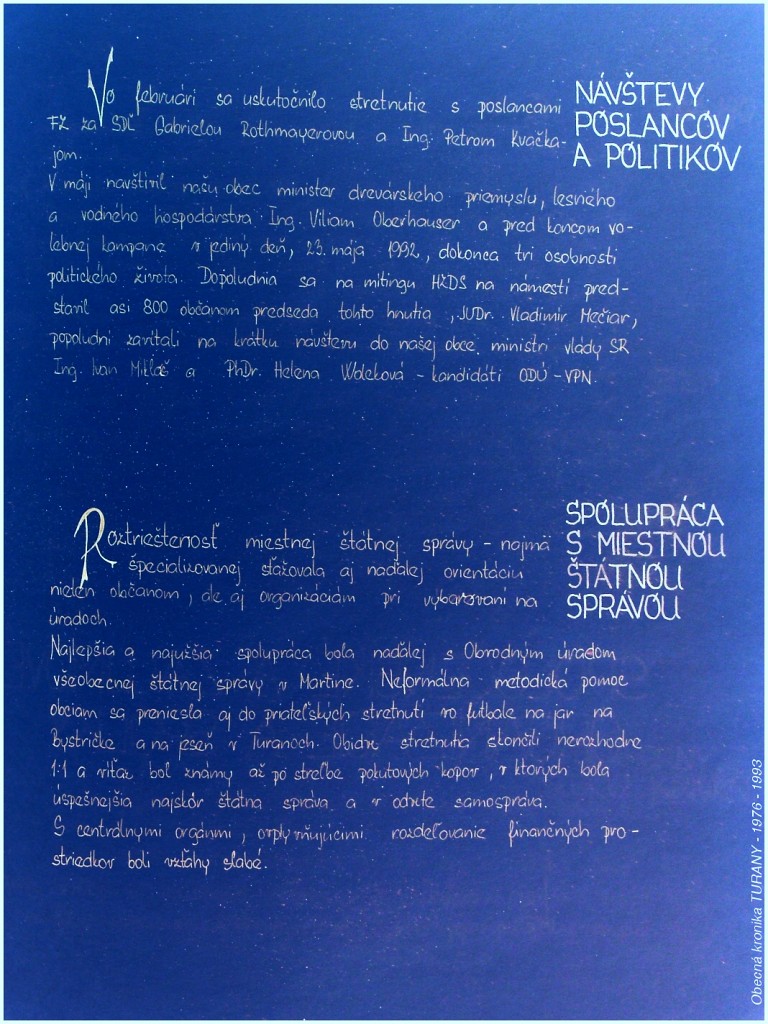 NÁVŠTEVY
POSLANCOV
A POLITIKOV
Vo februári sa uskutočnilo stretnutie s poslancami
FZ za SDĽ Gabrielou Rothmayerovou a Ing. Petrom Kvačka-
jom.
V máji navštívil našu obec minister drevárskeho priemyslu, lesného
a vodného hospodárstva Ing. Viliam Oberhauser a pred koncom vo-
lebnej kampane v jediný deň, 23. mája 1992, dokonca tri osobnosti
politického života. Dopoludnia sa na mítingu HZDS na námestí pred-
stavil asi 800 občanom predseda tohto hnutia, JUDr. Vladimír Mečiar,
popoludní zavítali na krátku návštevu do našej obce ministri vlády SR
Ing. Ivan Mikloš a PhDr. Helena Woleková - kandidáti ODÚ - VPN.
SPOLUPRÁCA
S MIESTNOU
ŠTÁTNOU
SPRÁVOU
Roztrieštenosť miestnej štátnej správy - najmä
špecializovanej sťažovala aj naďalej orientáciu
nielen občanom, ale aj organizáciám pri vybavovaní na
úradoch.
Najlepšia a najužšia spolupráca bola naďalej s Obvodným úradom
všeobecnej štátnej správy v Martine. Neformálna metodická pomoc
obciam sa preniesla aj do priateľských stretnutí vo futbale na jar na
Bystričke a na jeseň v Turanoch. Obidve stretnutia skončili nerozhodne
1:1 a víťaz bol známy až po streľbe pokutových kopov, v ktorých bola
úspešnejšia najskôr štátna správa a v odvete samospráva.
S centrálnymi orgánmi, ovplyvňujúcimi rozdeľovanie finančných pro-
striedkov boli vzťahy slabé.
Obecná kronika TURANY - 1976 - 1993